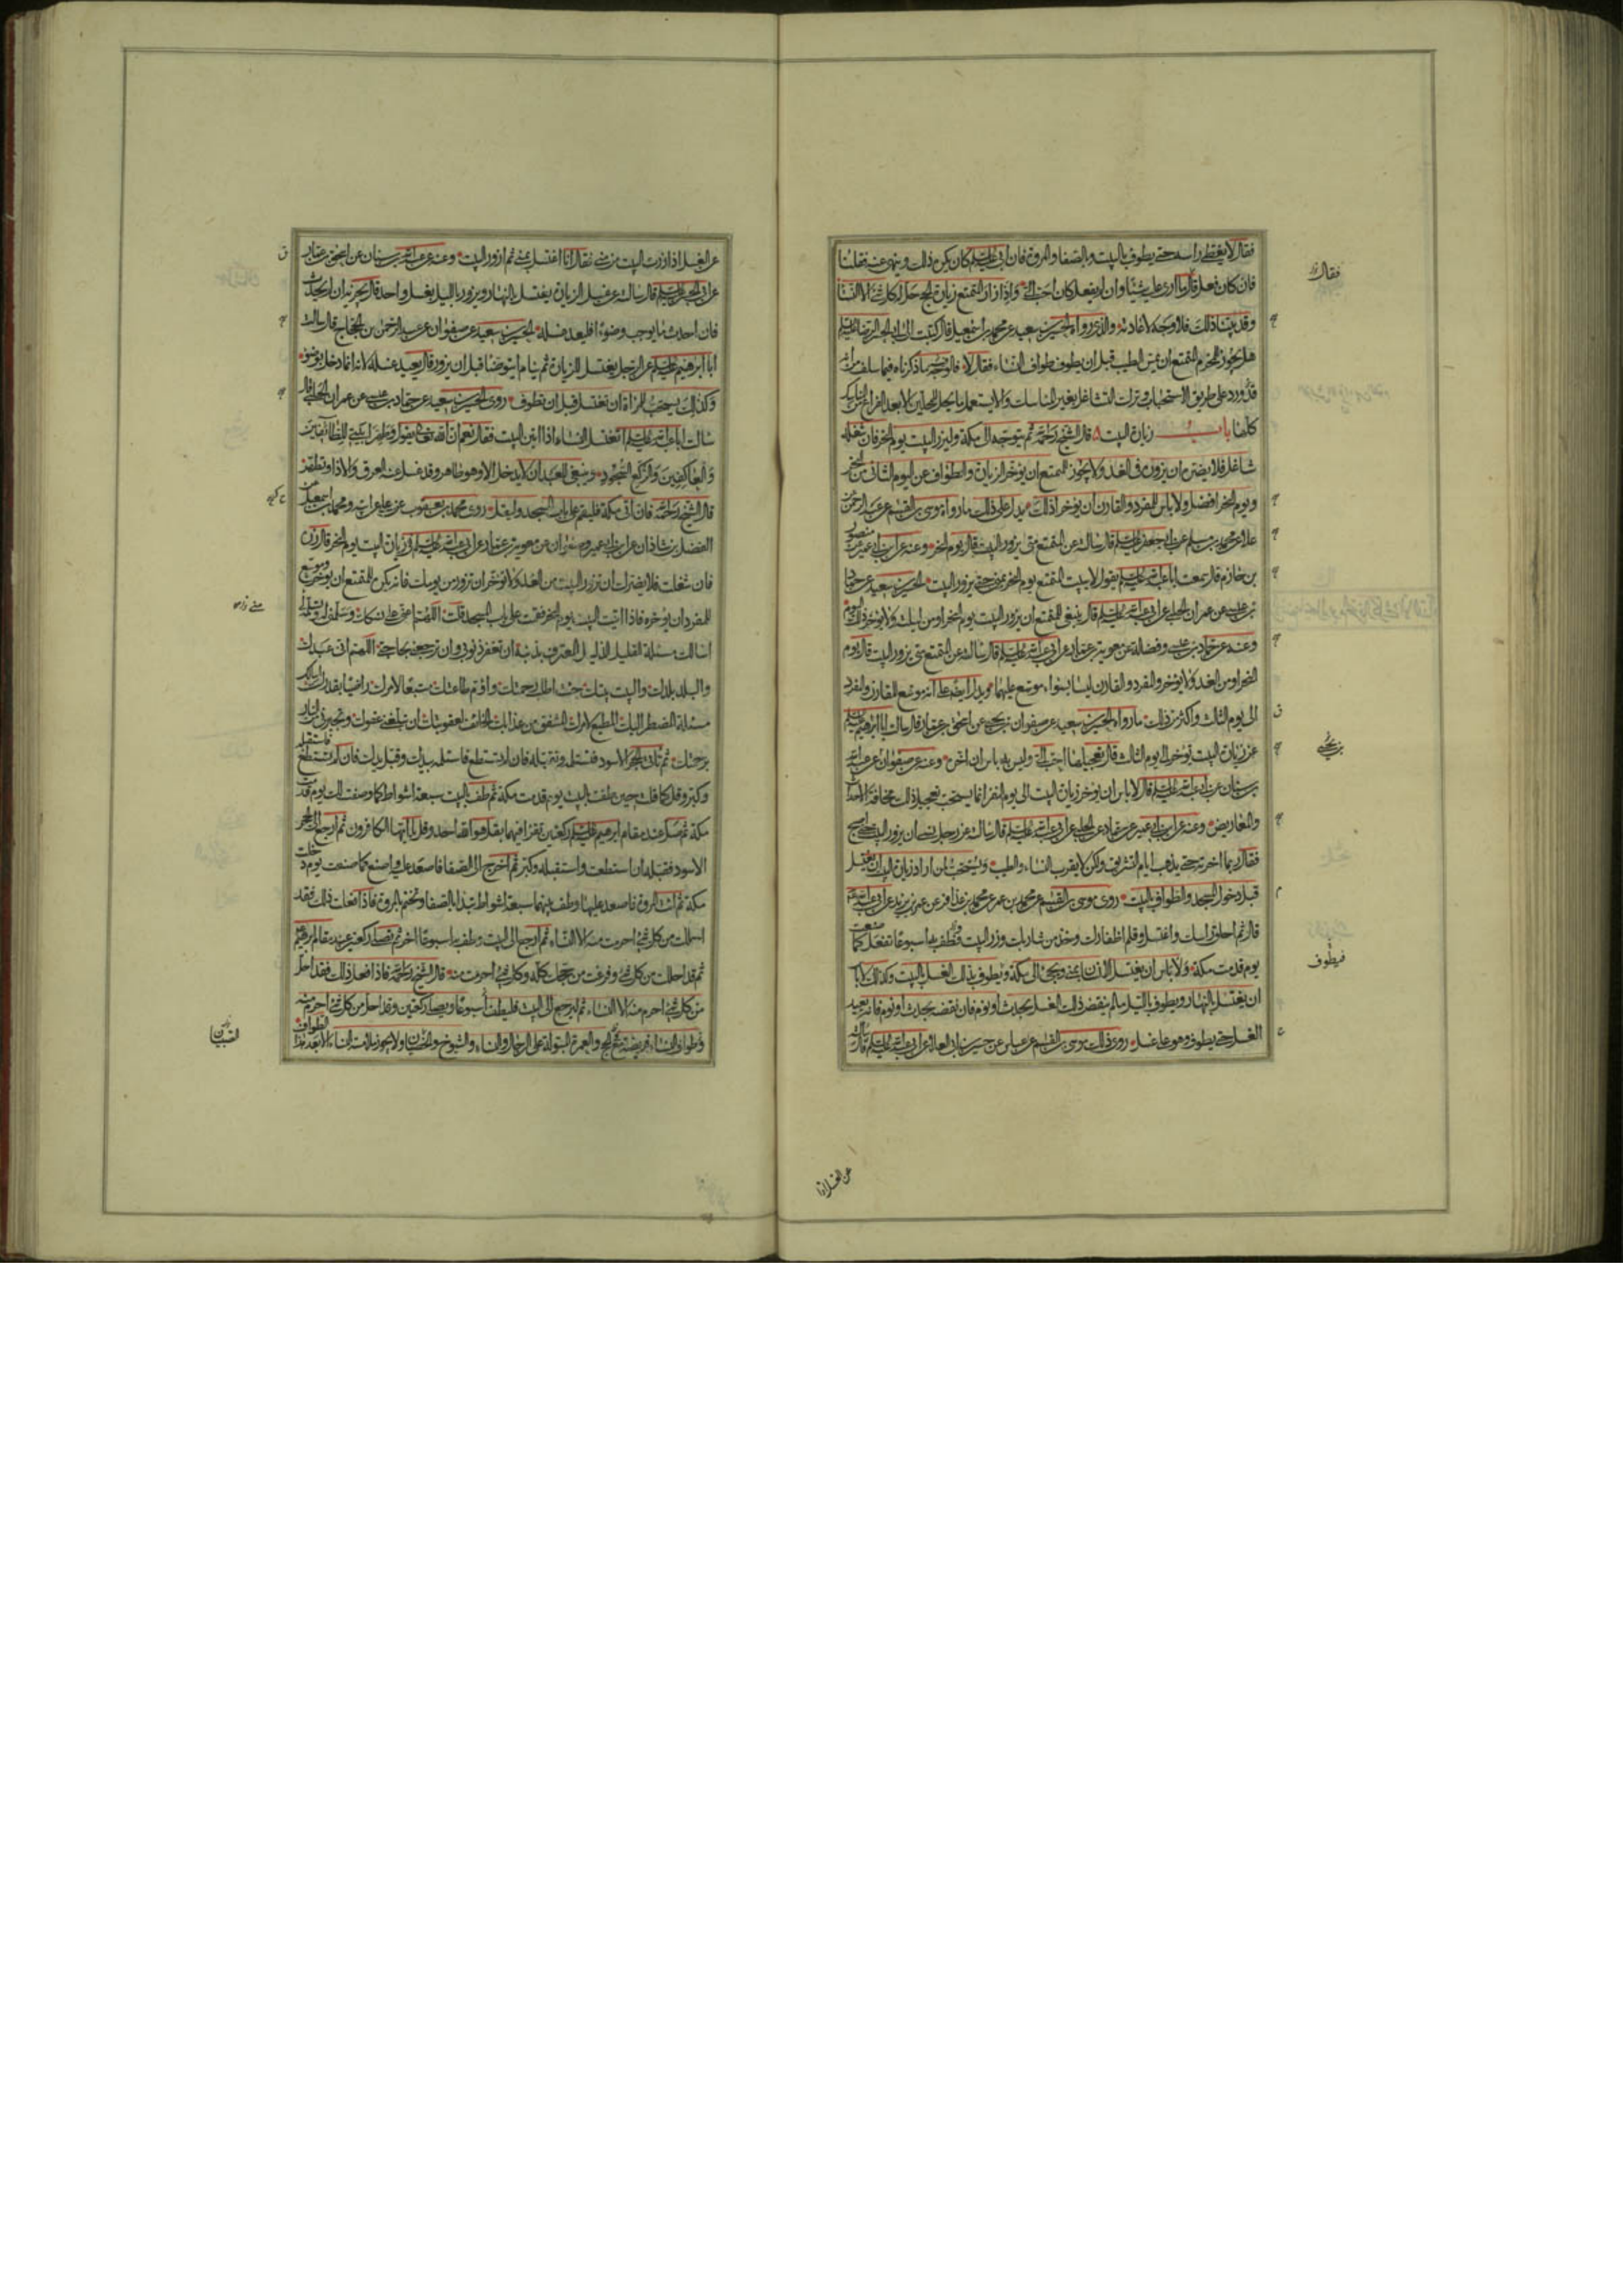 فقال لا يغطي راسه حتى يطوف بالبيت وبالصفا والمروة فان ابي عليه السلم كان يكره ذلك وينهى عنه فقلنا
فان كان فعل قال ما ارى عليه شيئا وان لم يفعل كان احب الي واذا زار المتمتع زيارة الحج حل له كل شئ الا النسا
وقد بينا ذلك فلا وجه لاعادته والذي رواه الحسين بن سعيد عن محمد بن اسمعيل قال كتبت الى ابي الحسن الرضا عليه السلم
هل يجوز للمحرم المتمتع ان يمس الطيب قبل ان يطوف طواف النساء فقال لا فالوجه ما ذكرناه فيما سلف من انه
قد ورد على طريق الاستحباب وترك التشاغل بغير المناسك والا يستعمل ما يحل للمحلين الا بعد الفراغ من المناسك
كلها باب زيارة البيت قال الشيخ رحمه الله ثم يتوجه الى مكة وليزر البيت يوم النحر فان شغله
شاغل فلا يضره ان يزوره في الغد ولا يجوز للمتمتع ان يؤخر الزيارة والطواف عن اليوم الثاني من النحر
ويوم النحر افضل ولا باس للمفرد والقارن ان يؤخرا ذلك يدل على ذلك ما رواه موسى بن القسم عن عبد الرحمن عن
علا عن محمد بن مسلم عن ابي جعفر عليه السلم قال سالته عن المتمتع متى يزور البيت قال يوم النحر وعنه عن ابن ابي عمير عن منصور
بن حازم قال سمعت ابا عبد الله عليه السلم يقول لا يبيت المتمتع يوم النحر بمنى حتى يزور البيت الحسين بن سعيد عن حماد
بن عيسى عن عمران الحلبي عن ابي عبد الله عليه السلم قال ينبغي للمتمتع ان يزور البيت يوم النحر او من ليلته ولا يؤخر ذلك اليوم
وعنه عن حماد بن عيسى وفضالة عن معوية بن عمار عن ابي عبد الله عليه السلم قال سالته عن المتمتع متى يزور البيت قال يوم
النحر او من الغد ولا يؤخر والمفرد والقارن ليسا بسواء موسع عليهما ويدل ايضا على انه موسع للقارن والمفرد
الى يوم الثالث واكثر من ذلك ما رواه الحسين بن سعيد عن صفوان بن يحيى عن اسحق بن عمار قال سالت ابا ابرهيم عليه السلم
عن زيارة البيت تؤخر الى يوم الثالث قال تعجيلها احب الي وليس به باس ان اخره وعنه عن صفوان عن عبد الله
بن سنان عن ابي عبد الله عليه السلم قال لا باس ان يؤخر زيارة البيت الى يوم النفر انما يستحب تعجيل ذلك مخافة الاحداث
والمعاريض وعنه عن ابن ابي عمير عن حماد عن الحلبي عن ابي عبد الله عليه السلم قال سالته عن رجل نسي ان يزور البيت حتى اصبح
فقال ربما اخرته حتى يذهب ايام التشريق ولكن لا يقرب النساء والطيب ويستحب لمن اراد زيارة البيت ان يغتسل
قبل دخول المسجد والطواف بالبيت روى موسى بن القسم عن محمد بن عمر عن محمد بن عذافر عن عمر بن يزيد عن ابي عبد الله عليه السلم
قال ثم احلق راسك واغتسل وقلم اظفارك وخذ من شاربك وزر البيت وطف به اسبوعا تفعل كما صنعت
يوم قدمت مكة ولا باس ان يغتسل الانسان بمنى ويجئ الى مكة ويطوف بذلك الغسل بالبيت وكذلك لا باس
ان يغتسل بالنهار ويطوف بالليل ما لم ينقض ذلك الغسل بحدث او نوم فان نقضه بحدث او نوم فانه يعيد
الغسل حتى يطوف وهو على غسل روى ذلك موسى بن القسم عن عباس عن حسين بن ابي العلا عن ابي عبد الله عليه السلم قال سالته
فقال
بن يحيى
فيطوف
عن الغسل اذا
عن الغسل اذا زرت البيت من منى فقال انا اغتسل بمنى ثم ازور البيت وعنه عن عبد الله بن سنان عن اسحق بن عمار
عن ابي الحسن عليه السلم قال سالته عن غسل الزيارة يغتسل بالنهار ويزور بالليل بغسل واحد قال يجزيه ان لم يحدث
فان احدث ما يوجب وضوءا فليعد غسله الحسين بن سعيد عن صفوان عن عبد الرحمن بن الحجاج قال سالت
ابا ابرهيم عليه السلم عن الرجل يغتسل للزيارة ثم ينام ايتوضا قبل ان يزور قال يعيد غسله لانه انما دخل بوضوء
وكذلك يستحب للمراة ان تغتسل قبل ان تطوف روى الحسين بن سعيد عن حماد بن عيسى عن عمران الحلبي قال
سالت ابا عبد الله عليه السلم اتغتسل النساء اذا اتين البيت فقال نعم ان الله تعالى يقول وطهرا بيتي للطائفين
والعاكفين والركع السجود وينبغي للعبد ان لا يدخل الا وهو طاهر وقد غسل عنه العرق والاذى وتطهر
قال الشيخ رحمه الله فان اتى مكة فليقم على باب المسجد وليقل روى محمد بن يعقوب عن علي عن ابيه ومحمد بن اسمعيل عن
الفضل بن شاذان عن ابن ابي عمير وصفوان عن معوية بن عمار عن ابي عبد الله عليه السلم في زيارة البيت يوم النحر قال زره
فان شغلت فلا يضرك ان تزور البيت من الغد ولا تؤخر ان تزور من يومك فانه يكره للمتمتع ان يؤخره وموسع
للمفرد ان يؤخره فاذا اتيت البيت يوم النحر فقمت على باب المسجد قلت اللهم اعني على نسكك وسلمني له وسلمه لي
اسالك مسئلة القليل الذليل المعترف بذنبه ان تغفر ذنوبي وان ترجعني بحاجتي اللهم اني عبدك
والبلد بلدك والبيت بيتك جئت اطلب رحمتك واؤم طاعتك متبعا لامرك راضيا بقدرك اسالك
مسئلة المضطر اليك المطيع لامرك المشفق من عذابك الخائف لعقوبتك ان تبلغني عفوك وتجيرني من النار
برحمتك ثم تاتي الحجر الاسود فتستلمه وتقبله فان لم تستطع فاستلمه بيدك وقبل يدك فان لم تستطع فاستقبله
وكبر وقل كما قلت حين طفت بالبيت يوم قدمت مكة ثم طف بالبيت سبعة اشواط كما وصفت لك يوم قدمت
مكة ثم صل عند مقام ابرهيم عليه السلم ركعتين تقرا فيهما بقل هو الله احد وقل يا ايها الكافرون ثم ارجع الى الحجر
الاسود فقبله ان استطعت واستقبله وكبر ثم اخرج الى الصفا فاصعد عليه واصنع كما صنعت يوم دخلت
مكة ثم ائت المروة فاصعد عليها وطف بينهما سبعة اشواط تبدا بالصفا وتختم بالمروة فاذا فعلت ذلك فقد
احللت من كل شئ احرمت منه الا النساء ثم ارجع الى البيت وطف به اسبوعا اخر ثم تصلي ركعتين عند مقام ابرهيم
ثم قد احللت من كل شئ وفرغت من حجك كله وكل شئ احرمت منه قال الشيخ رحمه الله فاذا فعل ذلك فقد احل
من كل شئ احرم منه الا النساء ثم ليرجع الى البيت فليطف اسبوعا ويصلي ركعتين وقد احل من كل شئ احرم منه
وطواف النساء فريضة في الحج والعمرة المبتولة على الرجال والنساء والشيوخ والخصيان ولا يجوز ملامسة النساء الا بعد هذا الطواف